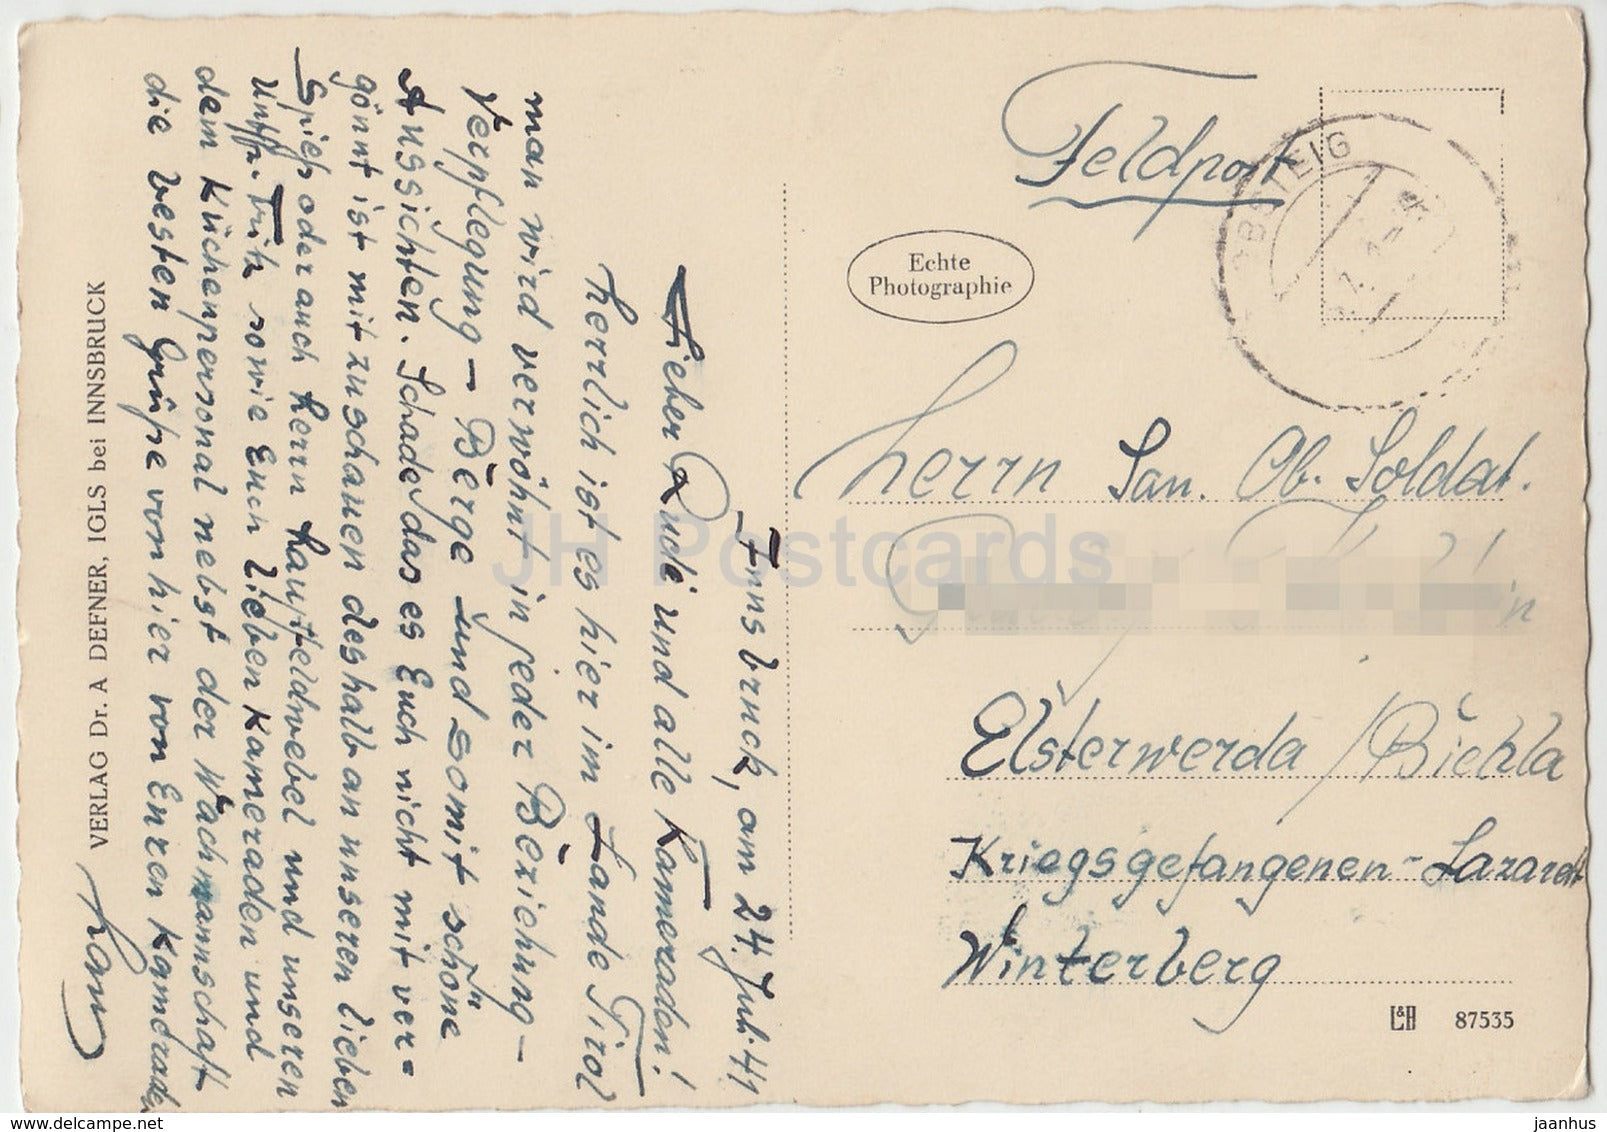 Innsbruck, am 24. Juli 41
Lieber Rudi und alle Kameraden!
Herrlich ist es hier im Lande Tirol
man wird verwöhnt in jeder Beziehung –
Verpflegung – Berge und somit schöne
Aussichten. Schade das es Euch nicht mit ver=
gönnt ist mit zuschauen deshalb an unseren lieben
Spieß oder auch Herrn Hauptfeldwebel und unseren
Uffz. sowie Euch lieben Kameraden und
dem Küchenpersonal nebst der Wachmannschaft
die besten Grüße von hier von Euren Kameraden
VERLAG Dr. A DEFNER, IGLS bei INNSBRUCK
Feldpost
OBSTEIG
Echte
Photographie
Herrn San. Ob. Soldat.
Elsterwerda / Biehla
Kriegsgefangenen-Lazarett
Winterberg
L&B 87535
JH Postcards
jaanhus-postcards.myshopify.com
jaanhus